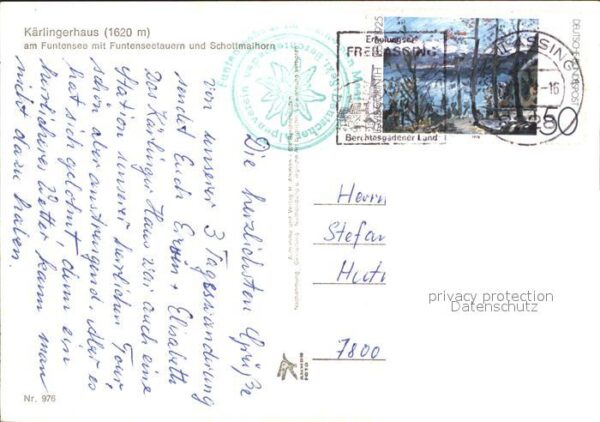 Kärlingerhaus (1620 m)
am Funtensee mit Funtenseetauern und Schottmalhorn
Die herzlichsten Grüße
von unserer 3 Tageswanderung
sendet Euch Erwin + Elisabeth
Das Kärlinger Haus war auch eine
Station unserer herrlichen Tour,
schön aber anstrengend. Aber es
hat sich gelohnt, denn ein
herrlicheres Wetter kann man
nicht dazu haben.
Nr. 976
Deutscher Alpenverein
Erholungsort
FREILASSING
Berchtesgadener Land
FREILASSING
-16
DEUTSCHE BUNDESPOST
50
ANKER
FOTO
Herrn
Stefan
7800
privacy protection
Datenschutz